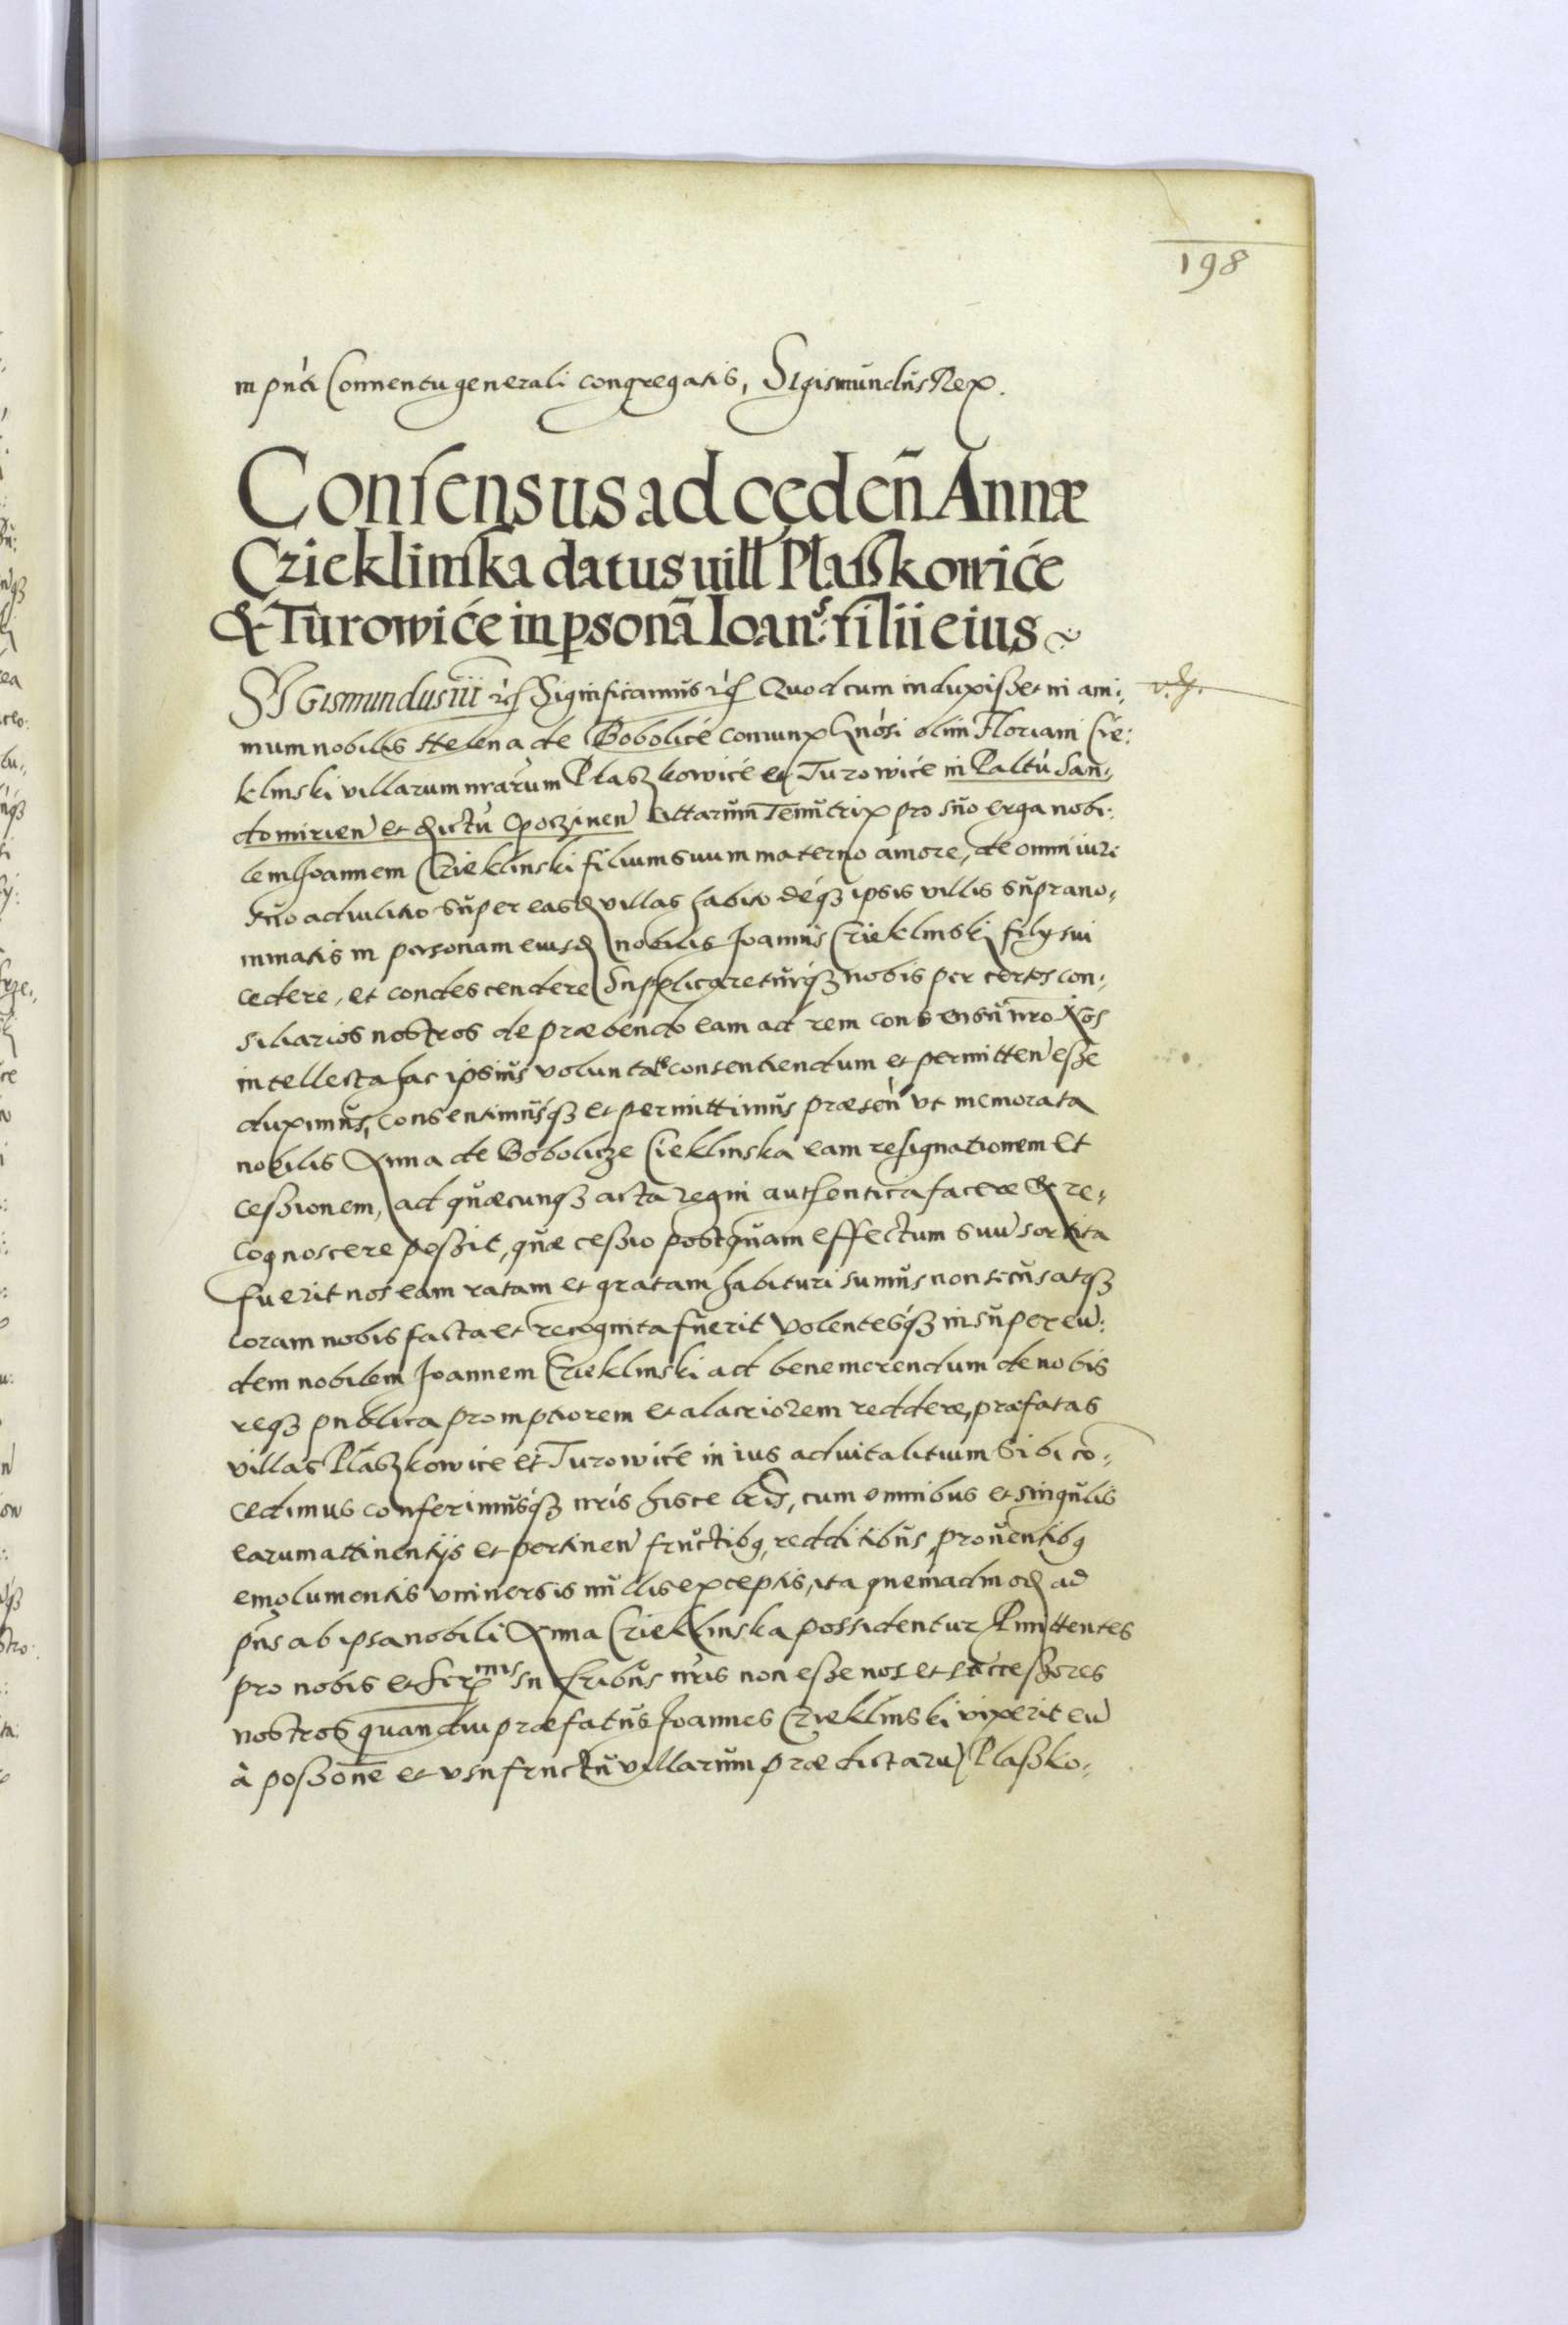 198
in pnti Conuentu generali congregatis, Sigismundus Rex.
Consensus ad cęden̄ Annæ
Czieklinska datus uill Plasskowiće
& Turowiće in psonā Ioan̄s: filii eius
SIGismundus iii rc̃ Significamus rc̃ Quod cum induxisset in ani-
mum nobilis Helena de Bobolicé coniunx Gnosi olim Floriani Cie:
klinski villarum nrarum Plaszkowicé et Turowicé in Paltu San-
domirien et dictu Opoczinen sittarum Tenutrix pro suo erga nobi:
lem Joannem Czieklinski filium suum materno amore, de omni iure
suo aduitio super easd villas habito déqz ipsis villis suprano-
minatis in personam eiusd nobilis Joannis Czieklinski filij sui
cedere, et condescendere Supplicareturqz nobis per certos con-
siliarios nostros de præbendo eam ad rem consensu nro Nos
intellecta hac ipsius voluntate consentiendum et permitten esse
duximus, consentimusqz et permittimus præsen vt memorata
nobilis Anna de Bobolicze Cieklinska eam resignationem et
cessionem, ad quæcunqz acta regni authentica facere & re-
cognoscere possit, quæ cessio postquam effectum suu sortita
fuerit nos eam ratam et gratam habituri sumus non secus atqz
coram nobis facta et recognita fuerit Volentesqz insuper eu:
dem nobilem Joannem Czieklinski ad benemerendum de nobis
reqz publica promptiorem et alacriorem reddere, præfatas
villas Plaszkowice et Turowicé in ius aduitalitium sibi co-
cedimus conferimusqz nris hisce lris, cum omnibus et singulis
earum attinentijs et pertinen fructibq, redditibus, prouentibq
emolumentis vniuersis nullis exceptis, ita quemadmod ad
pns ab ipsa nobili Anna Czieklinska possidentur Pmittentes
pro nobis et Serx mis sucribus nris non esse nos et successores
nostros quamdiu præfatus Joannes Czieklinski vixerit eu
à possone et vsufructu villarum prædictaru Plassko-